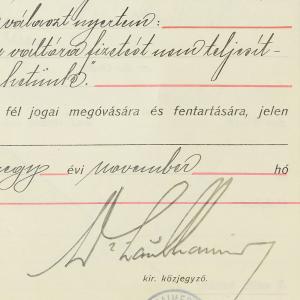 választ nyertem:
váltóra fizetést nem teljesít-
hetünk".
fél jogai megóvására és fentartására, jelen
egy évi november hó
Dr
kir. közjegyző.